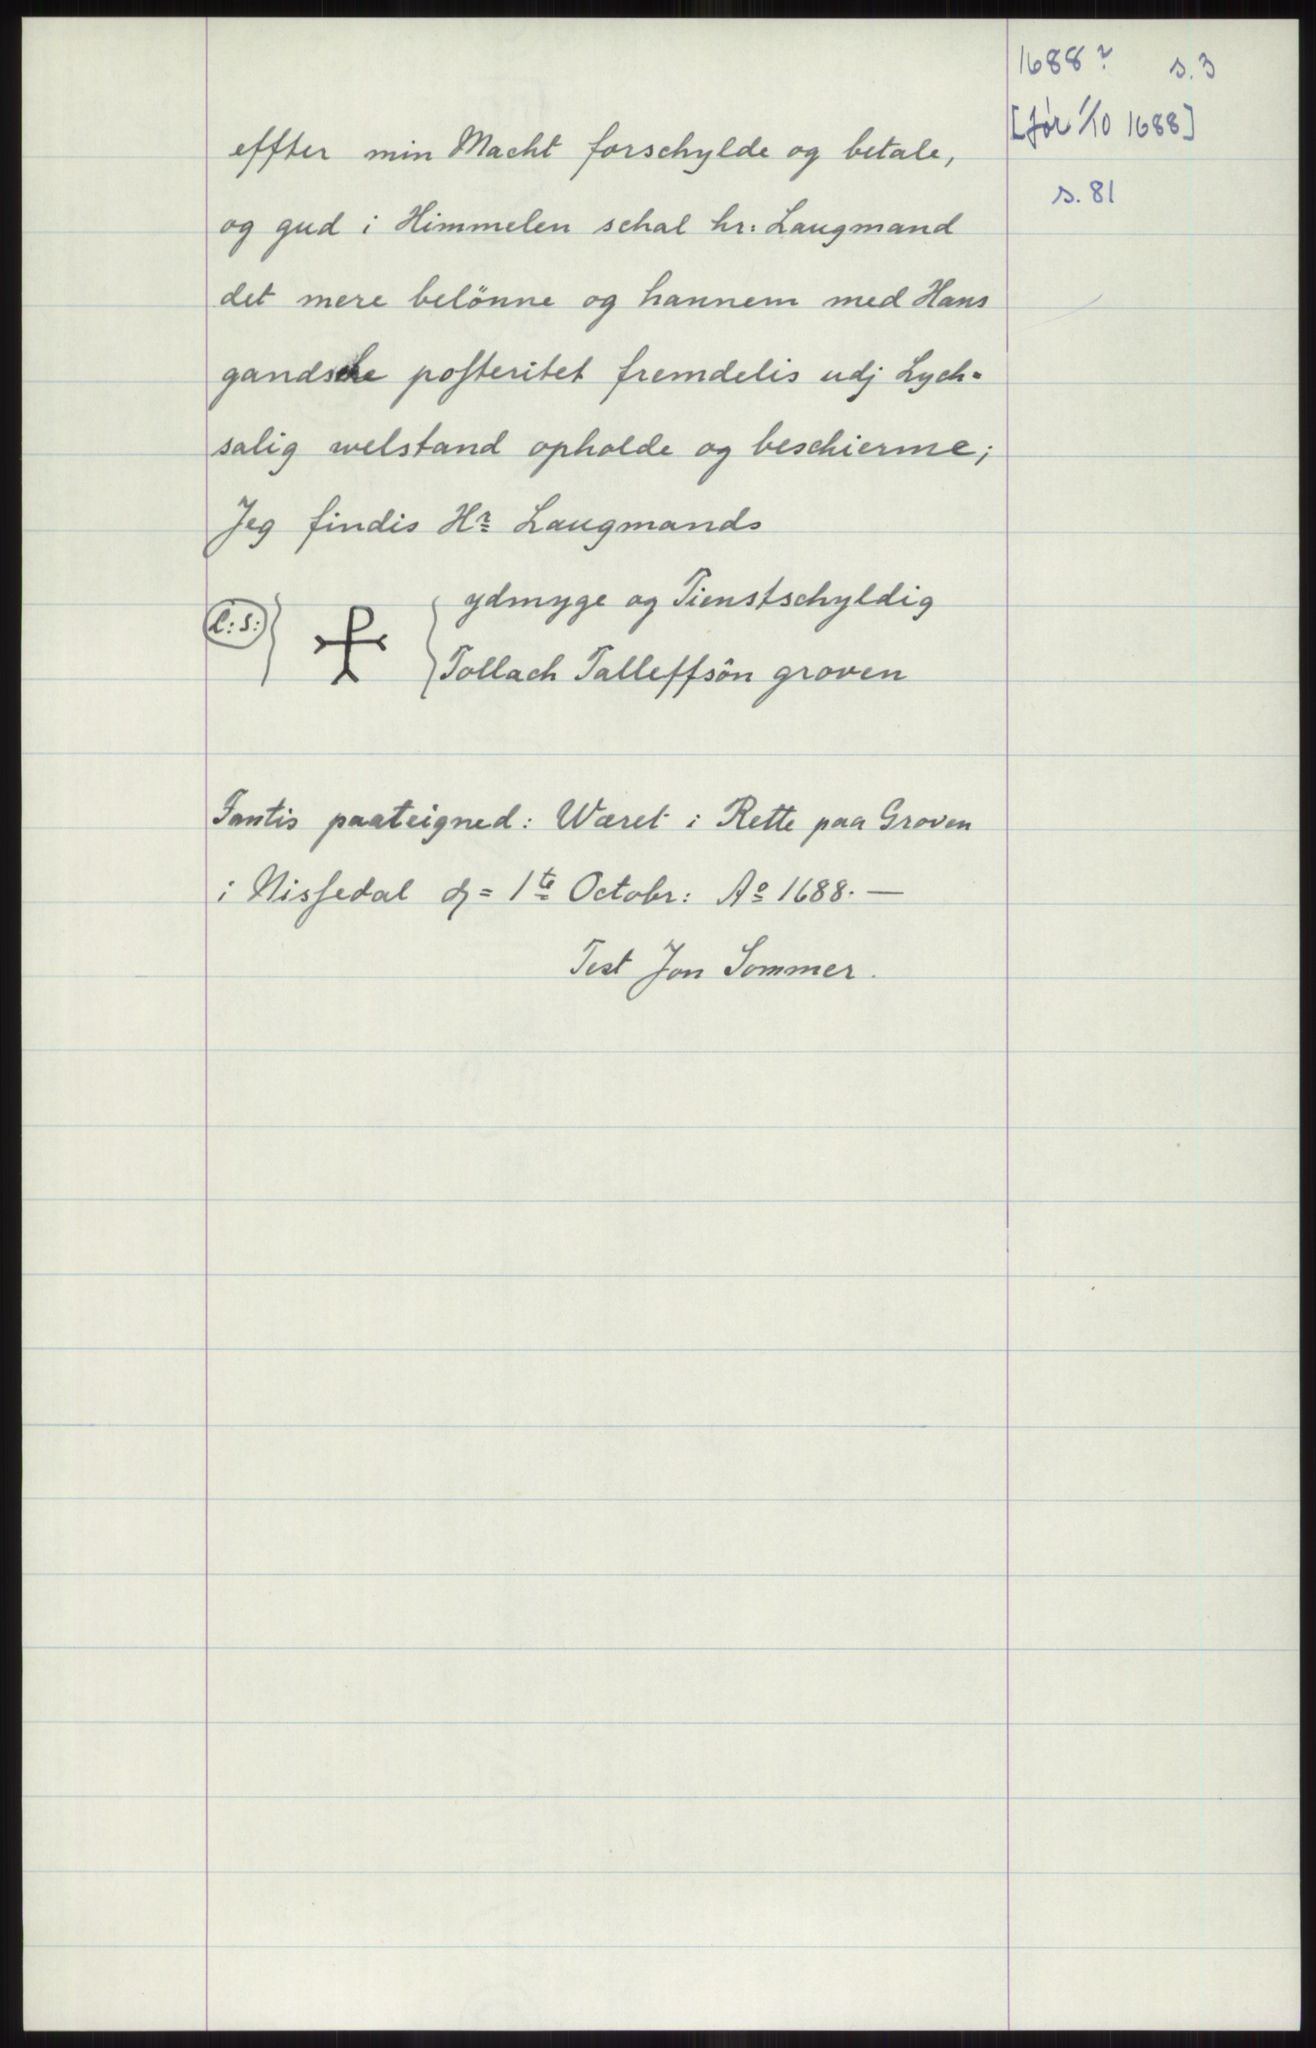 1688? s. 3
[før 1/10 1688]
s. 81
effter min Macht forschylde og betale,
og gud i Himmelen schal hr: Laugmand
det mere belönne og hannem med Hans
gandsche posteritet fremdelis udj Lych-
salig welstand opholde og beschierme;
Jeg findis Hr Laugmands
ydmyge og Tienstschyldig
L:S:
Tollach Talleffsön groven
paateigned: Wæret i Rette paa Groven
i Nissedal d = 1te Octobr: Ao 1688. —
Test Jon Sommer.